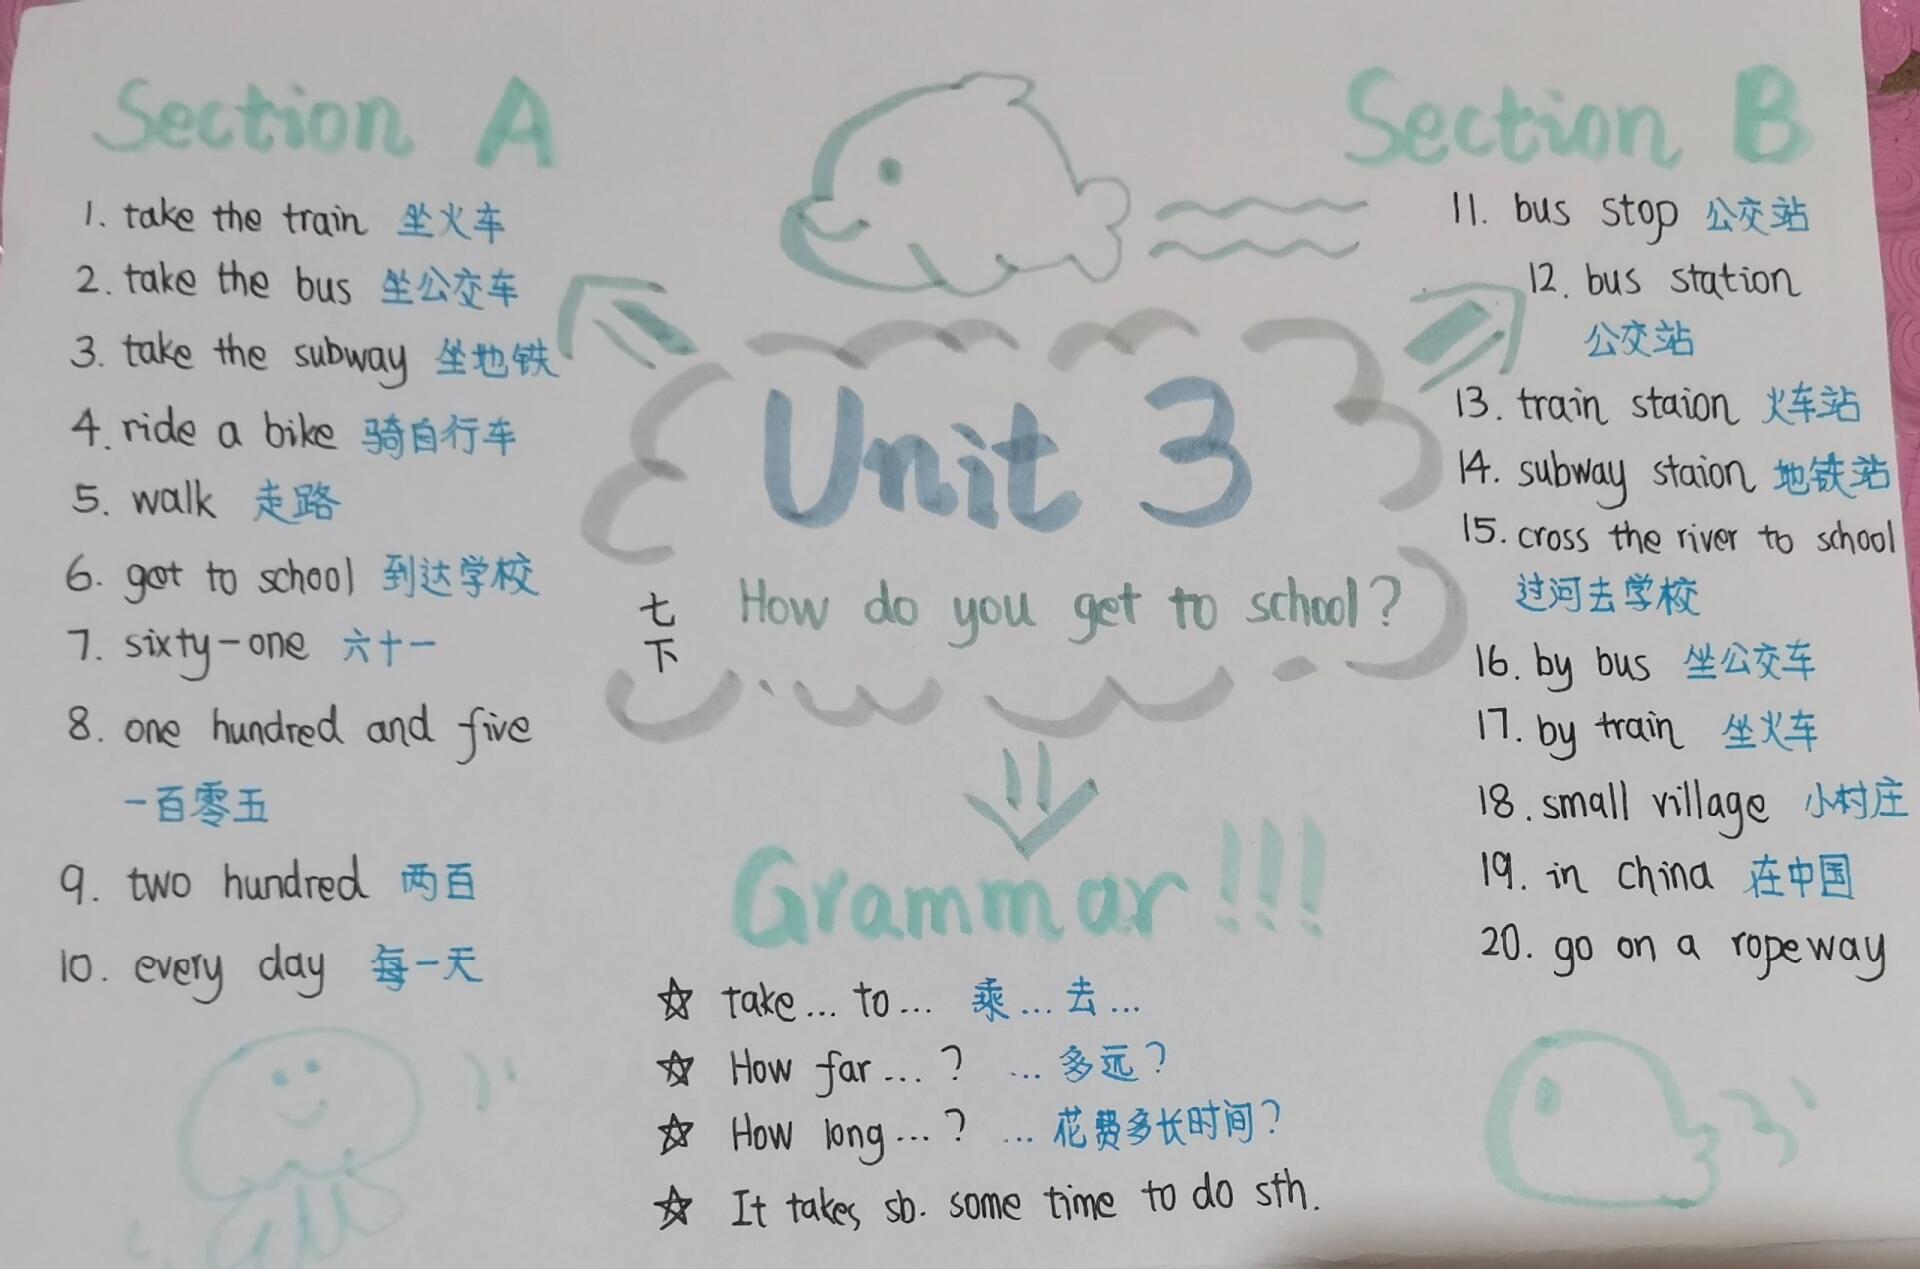 Section A
1. take the train 坐火车
2. take the bus 坐公交车
3. take the subway 坐地铁
4. ride a bike 骑自行车
5. walk 走路
6. get to school 到达学校
7. sixty-one 六十一
8. one hundred and five
一百零五
9. two hundred 两百
10. every day 每一天
Unit 3
七下
How do you get to school?
Grammar!!!
☆ take... to... 乘...去...
☆ How far...? ...多远?
☆ How long...? ...花费多长时间?
☆ It takes sb. some time to do sth.
Section B
11. bus stop 公交站
12. bus station
公交站
13. train staion 火车站
14. subway staion 地铁站
15. cross the river to school
过河去学校
16. by bus 坐公交车
17. by train 坐火车
18. small village 小村庄
19. in china 在中国
20. go on a ropeway